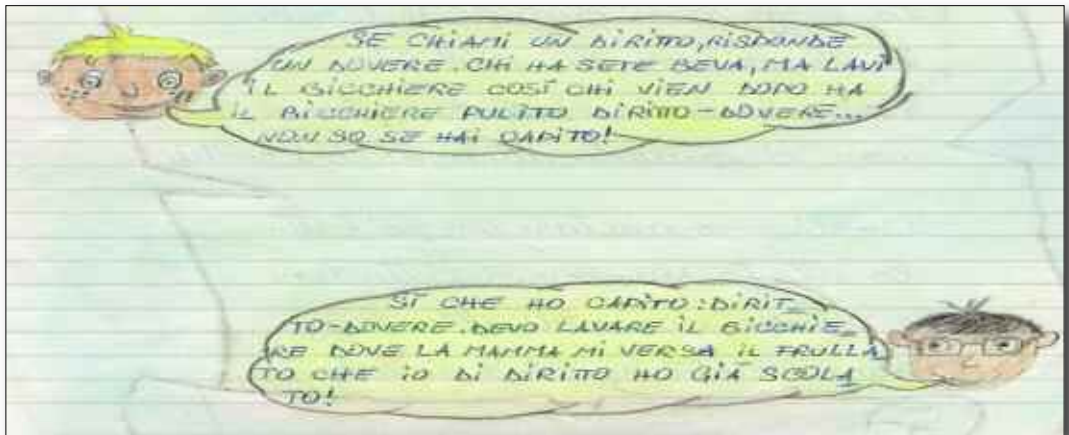 SE CHIAMI UN DIRITTO, RISPONDE
UN DOVERE. CHI HA SETE BEVA, MA LAVI
IL BICCHIERE COSÌ CHI VIEN DOPO HA
IL BICCHIERE PULITO DIRITTO-DOVERE...
NON SO SE HAI CAPITO!
SÌ CHE HO CAPITO: DIRIT_
TO-DOVERE. DEVO LAVARE IL BICCHIE_
RE DOVE LA MAMMA MI VERSA IL FRULLA
TO CHE IO DI DIRITTO HO GIÀ SCOLA
TO!